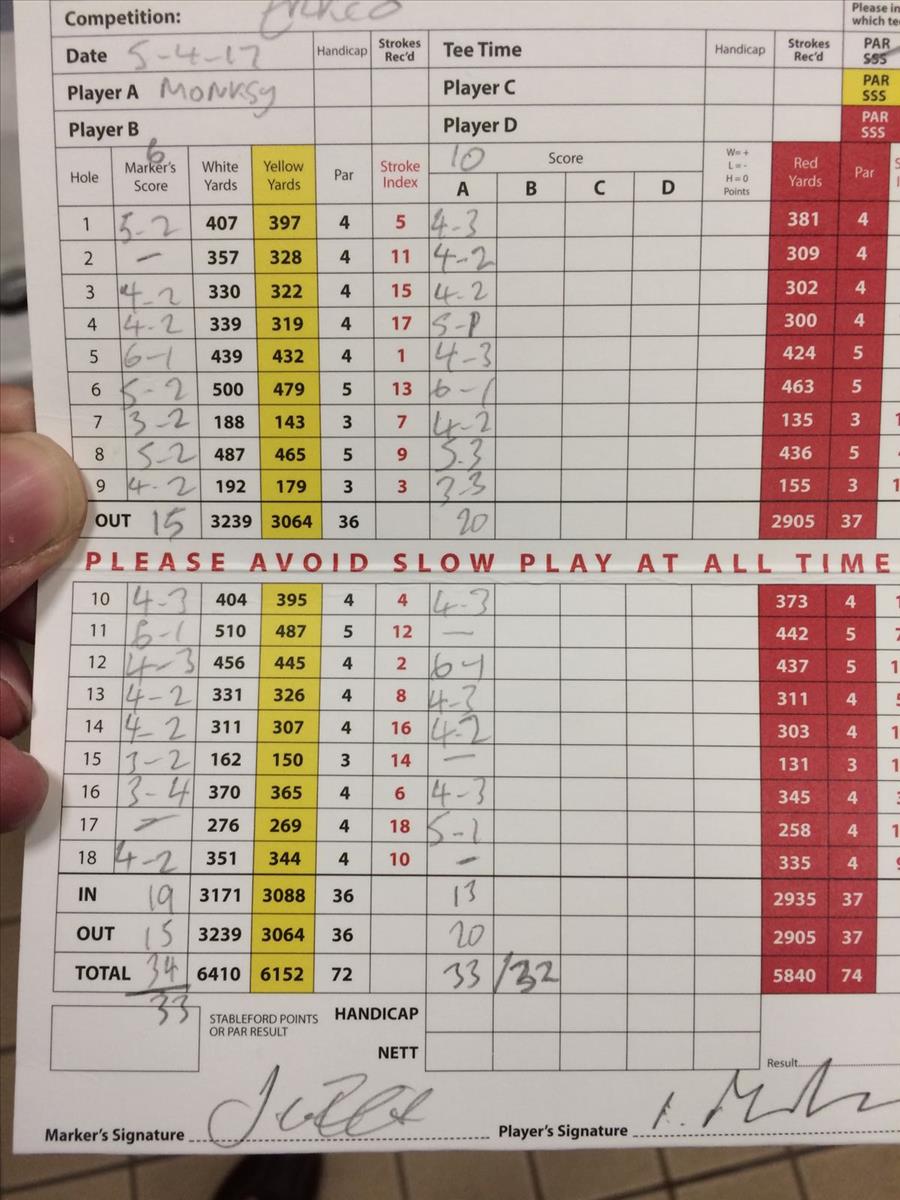 Competition:
Please in
which te
Date 5-4-17 Handicap Strokes Rec'd Tee Time Handicap Strokes Rec'd PAR SSS
Player A MONKSY Player C PAR SSS
Player B Player D PAR SSS
Hole 6 Marker's Score White Yards Yellow Yards Par Stroke Index 10 Score W=+ L=- H=0 Points Red Yards Par
A B C D
1 5-2 407 397 4 5 4-3 381 4
2 — 357 328 4 11 4-2 309 4
3 4-2 330 322 4 15 4-2 302 4
4 4-2 339 319 4 17 5-P 300 4
5 6-1 439 432 4 1 4-3 424 5
6 5-2 500 479 5 13 6-1 463 5
7 3-2 188 143 3 7 4-2 135 3
8 5-2 487 465 5 9 5.3 436 5
9 4-2 192 179 3 3 3-3 155 3
OUT 15 3239 3064 36 20 2905 37
PLEASE AVOID SLOW PLAY AT ALL TIME
10 4-3 404 395 4 4 4-3 373 4
11 6-1 510 487 5 12 — 442 5
12 4-3 456 445 4 2 6-1 437 5
13 4-2 331 326 4 8 4-3 311 4
14 4-2 311 307 4 16 4-2 303 4
15 3-2 162 150 3 14 — 131 3
16 3-4 370 365 4 6 4-3 345 4
17 — 276 269 4 18 5-1 258 4
18 4-2 351 344 4 10 - 335 4
IN 19 3171 3088 36 13 2935 37
OUT 15 3239 3064 36 20 2905 37
TOTAL 34 6410 6152 72 33 /32 5840 74
33 STABLEFORD POINTS OR PAR RESULT HANDICAP
NETT
Result
Marker's Signature Player's Signature